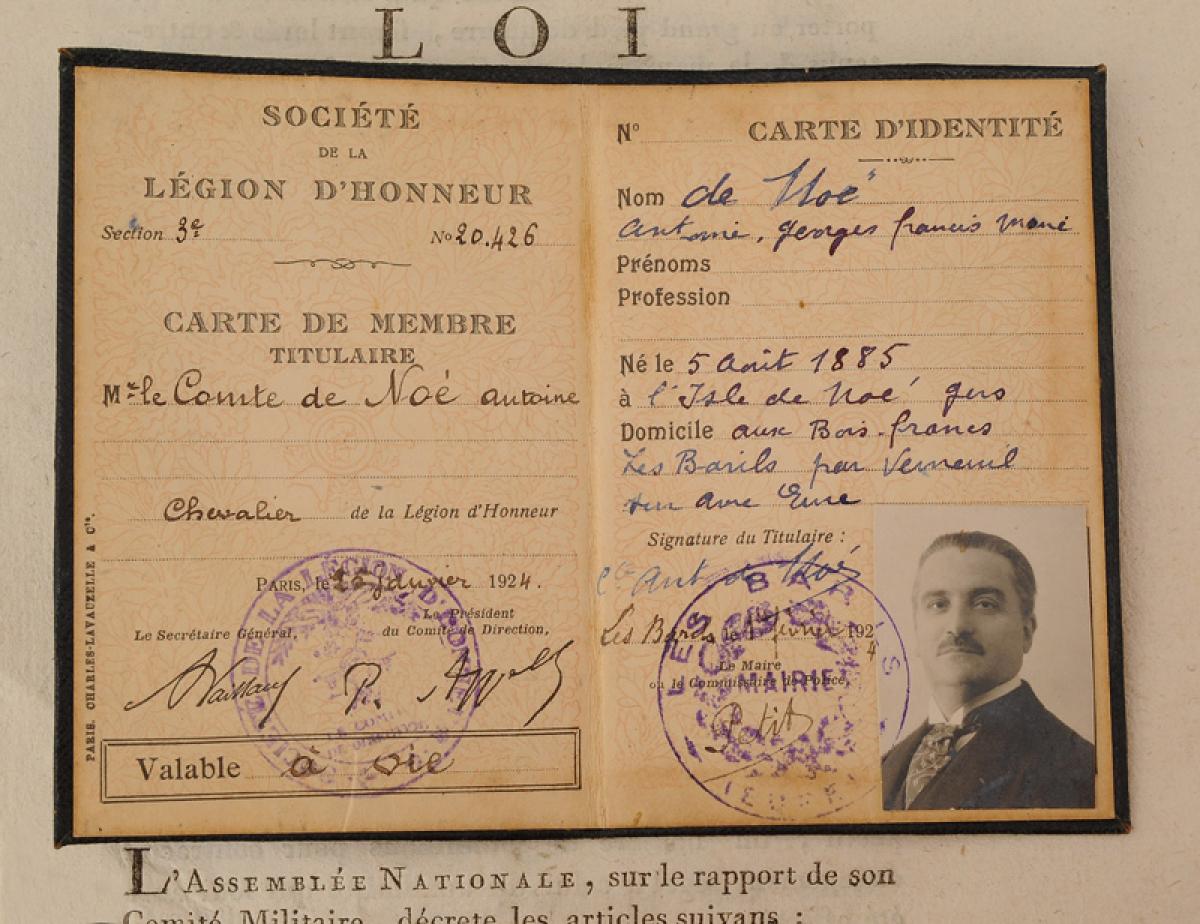 LOI
SOCIÉTÉ
DE LA
LÉGION D'HONNEUR
Section 3e No 20.426
CARTE DE MEMBRE
TITULAIRE
Mr le Comte de Noé antoine
Chevalier de la Légion d'Honneur
PARIS, le janvier 1924.
Le Secrétaire Général,
Le Président
du Comité de Direction,
P. Appell
Valable à vie
PARIS. CHARLES-LAVAUZELLE & Cie.
No CARTE D'IDENTITÉ
Nom de Noë
Antoine, georges francis marie
Prénoms
Profession
Né le 5 Août 1885
à l'Isle de Noé gers
Domicile aux Bois-francs
Les Barils par Verneuil
sur avre Eure
Signature du Titulaire :
Cte Ant de Noé
Les Barils le février 1924
Le Maire
ou le Commissaire de Police,
Petit
LES BARILS
MAIRIE
L'ASSEMBLÉE NATIONALE, sur le rapport de son
Comité Militaire, décrete les articles suivans :